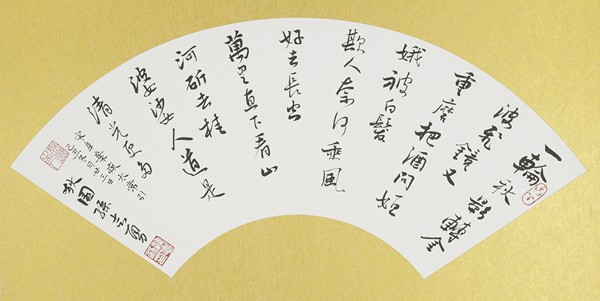 一輪秋影轉金
波飛鏡又
重磨把酒問姮
娥被白髮
欺人奈何乘風
好去長空
萬里直下看山
河斫去桂
婆娑人道是
清光更多
宋辛棄疾太常引
月廿三日
孫勇